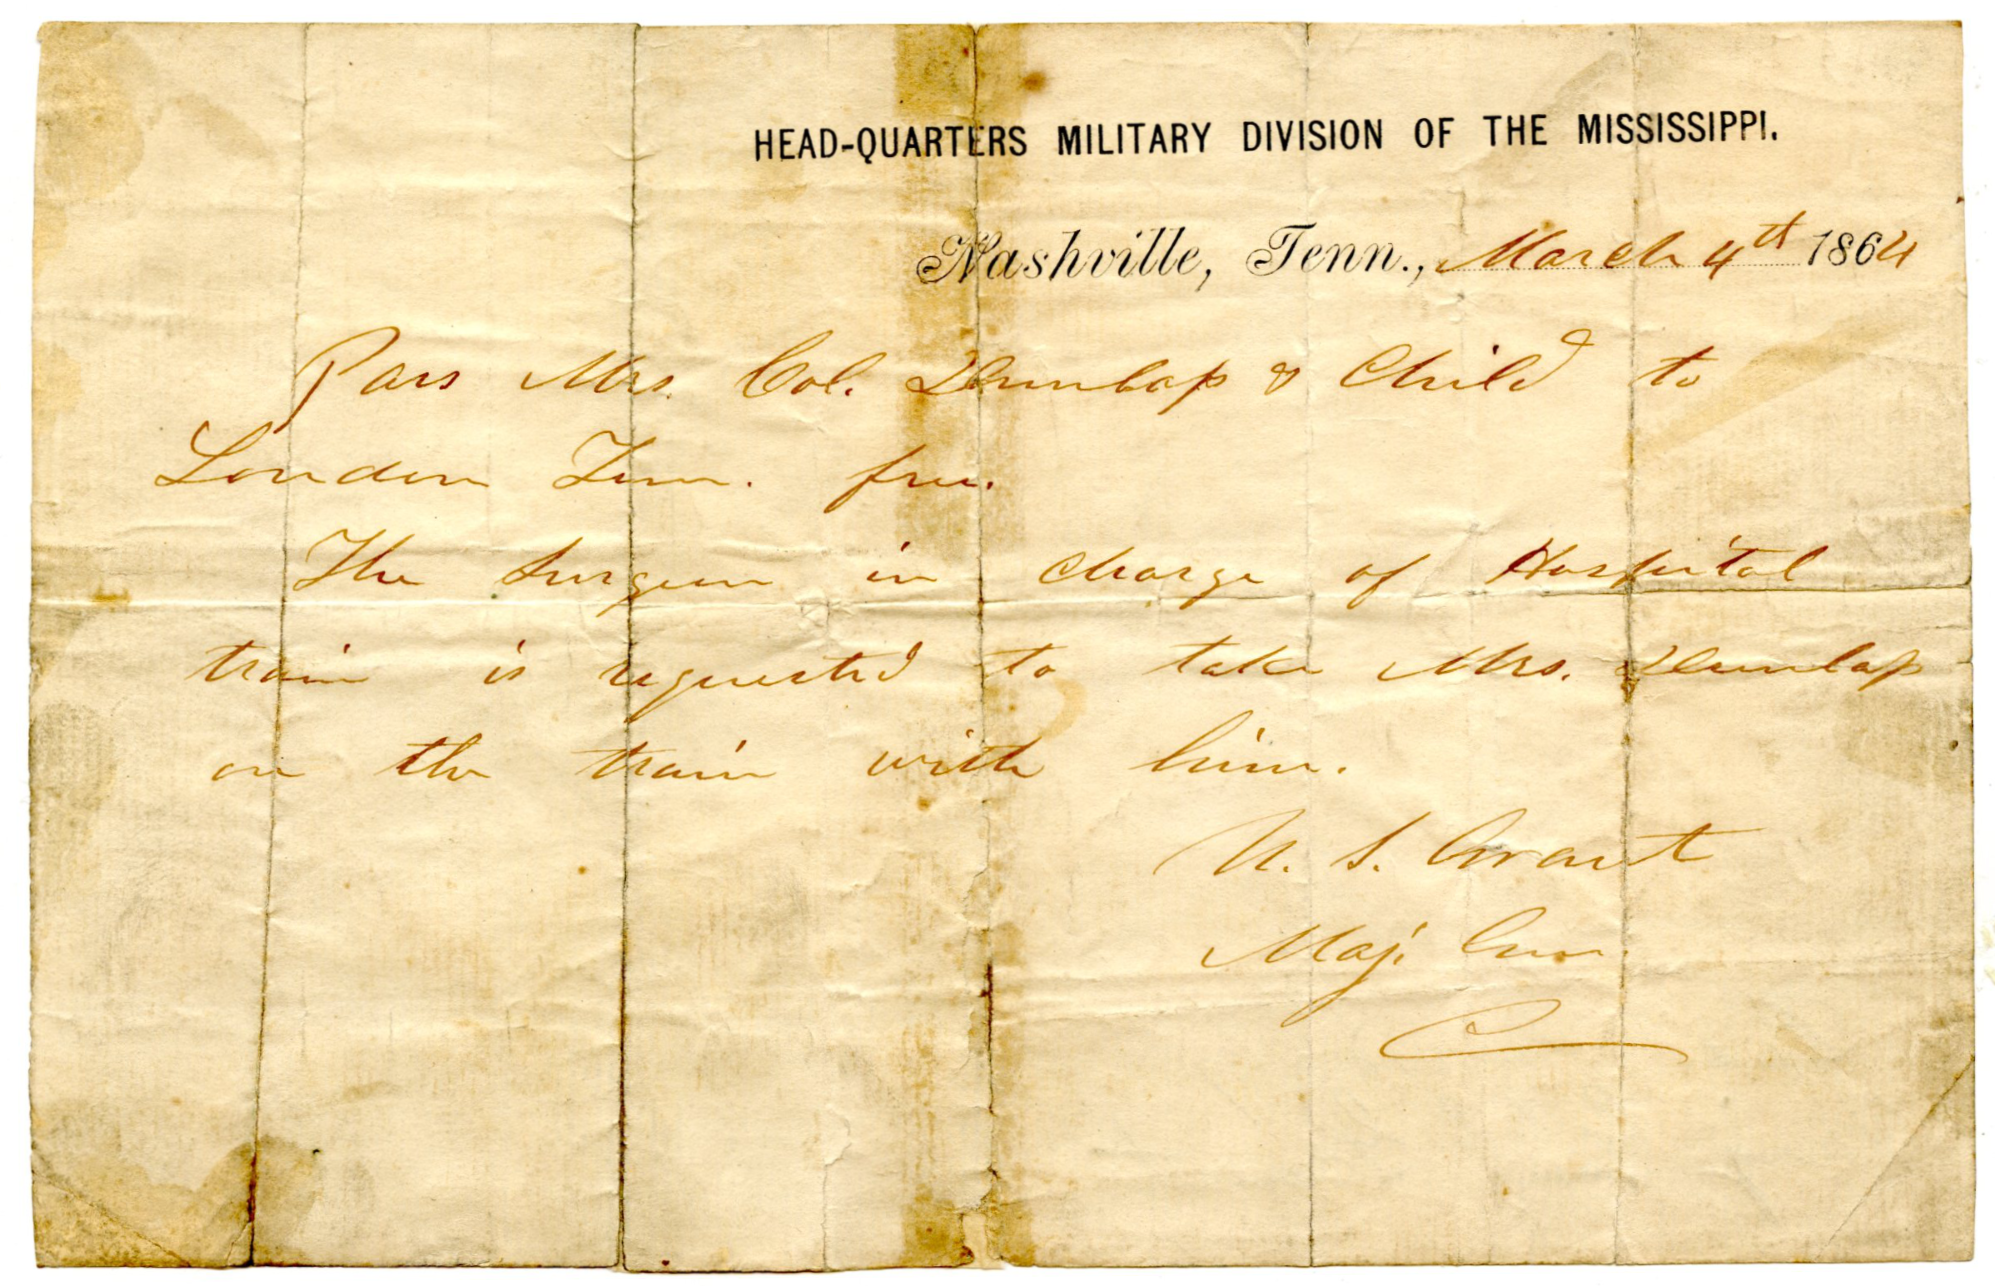 HEAD-QUARTERS MILITARY DIVISION OF THE MISSISSIPPI.
Nashville, Tenn., March 4th 1864
Pass Mrs. Col. Dunlap & Child to
London Tenn. free.
The Surgeon in charge of Hospital
train is requested to take Mrs. Dunlap
on the train with him.
U. S. Grant
Maj. Gen.